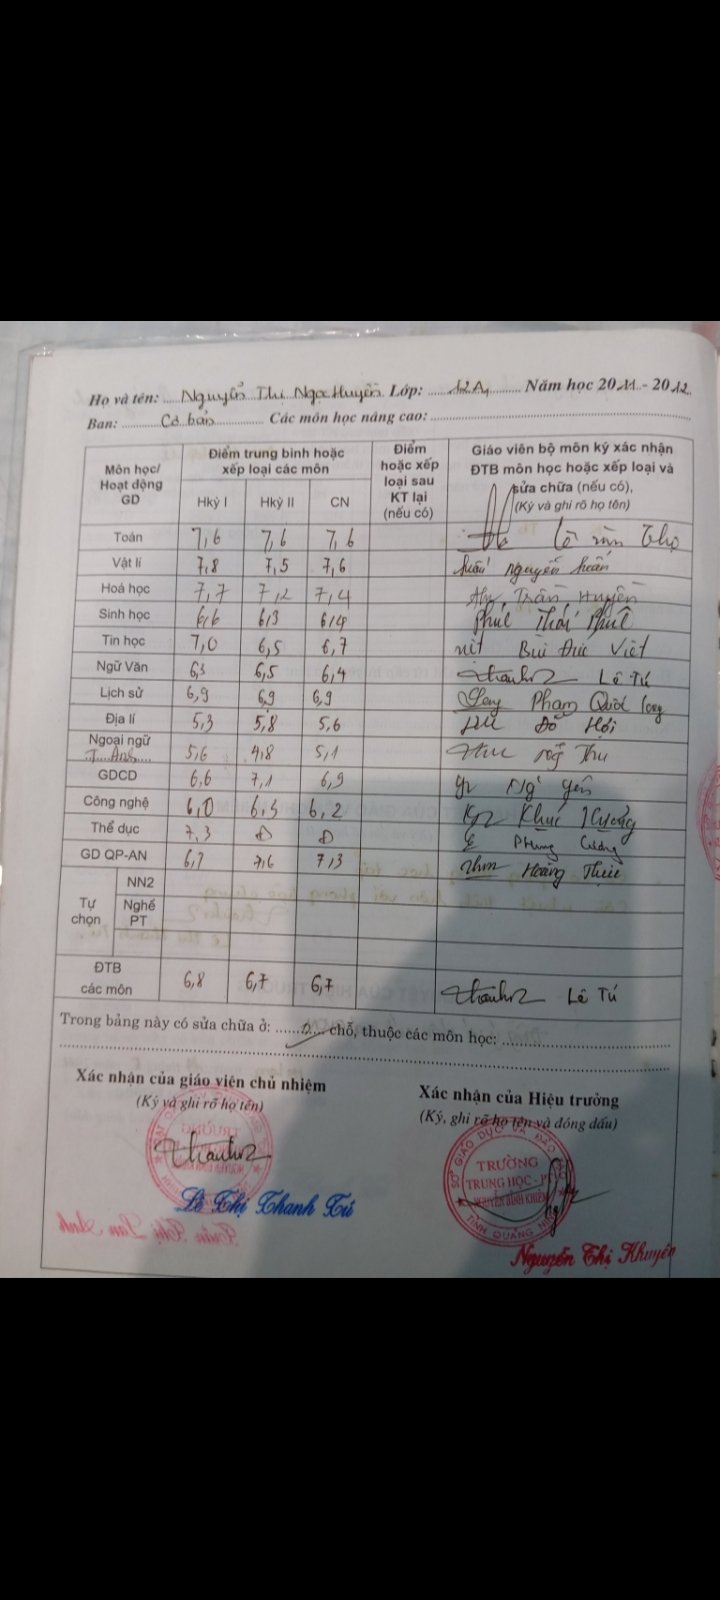 Họ và tên: Nguyễn Thị Ngọc Huyền Lớp: 12A1 Năm học 2011 - 2012
Ban: Cơ bản Các môn học nâng cao:
Môn học/ Hoạt động GD
Điểm trung bình hoặc xếp loại các môn
Hkỳ I Hkỳ II CN
Điểm hoặc xếp loại sau KT lại (nếu có)
Giáo viên bộ môn ký xác nhận ĐTB môn học hoặc xếp loại và sửa chữa (nếu có),
(Ký và ghi rõ họ tên)
Toán 7,6 7,6 7,6 Thọ
Vật lí 7,8 7,5 7,6 Nguyễn Huấn
Hoá học 7,7 7,2 7,4 Trần Huyền
Sinh học 6,6 6,3 6,4 Thái Phúc
Tin học 7,0 6,5 6,7 Bùi Đức Việt
Ngữ Văn 6,3 6,5 6,4 Lê Tú
Lịch sử 6,9 6,9 6,9 Phạm Quốc Long
Địa lí 5,3 5,8 5,6 Đỗ
Ngoại ngữ 5,6 4,8 5,1
T. Anh
GDCD 6,6 7,1 6,9 Yên
Công nghệ 6,0 6,3 6,2 Khúc
Thể dục 7,3 Đ Đ Phùng Cường
GD QP-AN 6,7 7,6 7,3 Hoàng
Tự chọn
NN2
Nghề PT
ĐTB các môn 6,8 6,7 6,7 Lê Tú
Trong bảng này có sửa chữa ở: 0 chỗ, thuộc các môn học:
Xác nhận của giáo viên chủ nhiệm
(Ký và ghi rõ họ tên)
Lê Thị Thanh Tú
Xác nhận của Hiệu trưởng
(Ký, ghi rõ họ tên và đóng dấu)
SỞ GIÁO DỤC VÀ ĐÀO TẠO
TRƯỜNG
TRUNG HỌC - PT
NGUYỄN BỈNH KHIÊM
TỈNH QUẢNG NINH
Nguyễn Thị Khuyên